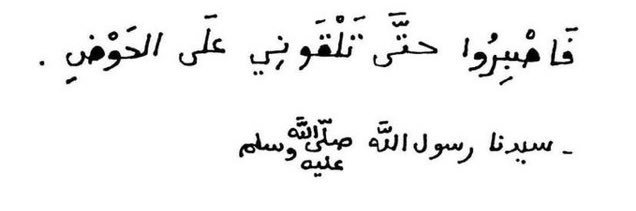 فَاصْبِرُوا حتَّى تَلْقَوني عَلَى الحَوْضِ .
- سيدنا رسول اللَّه صلّى اللَّه عليه وسلم